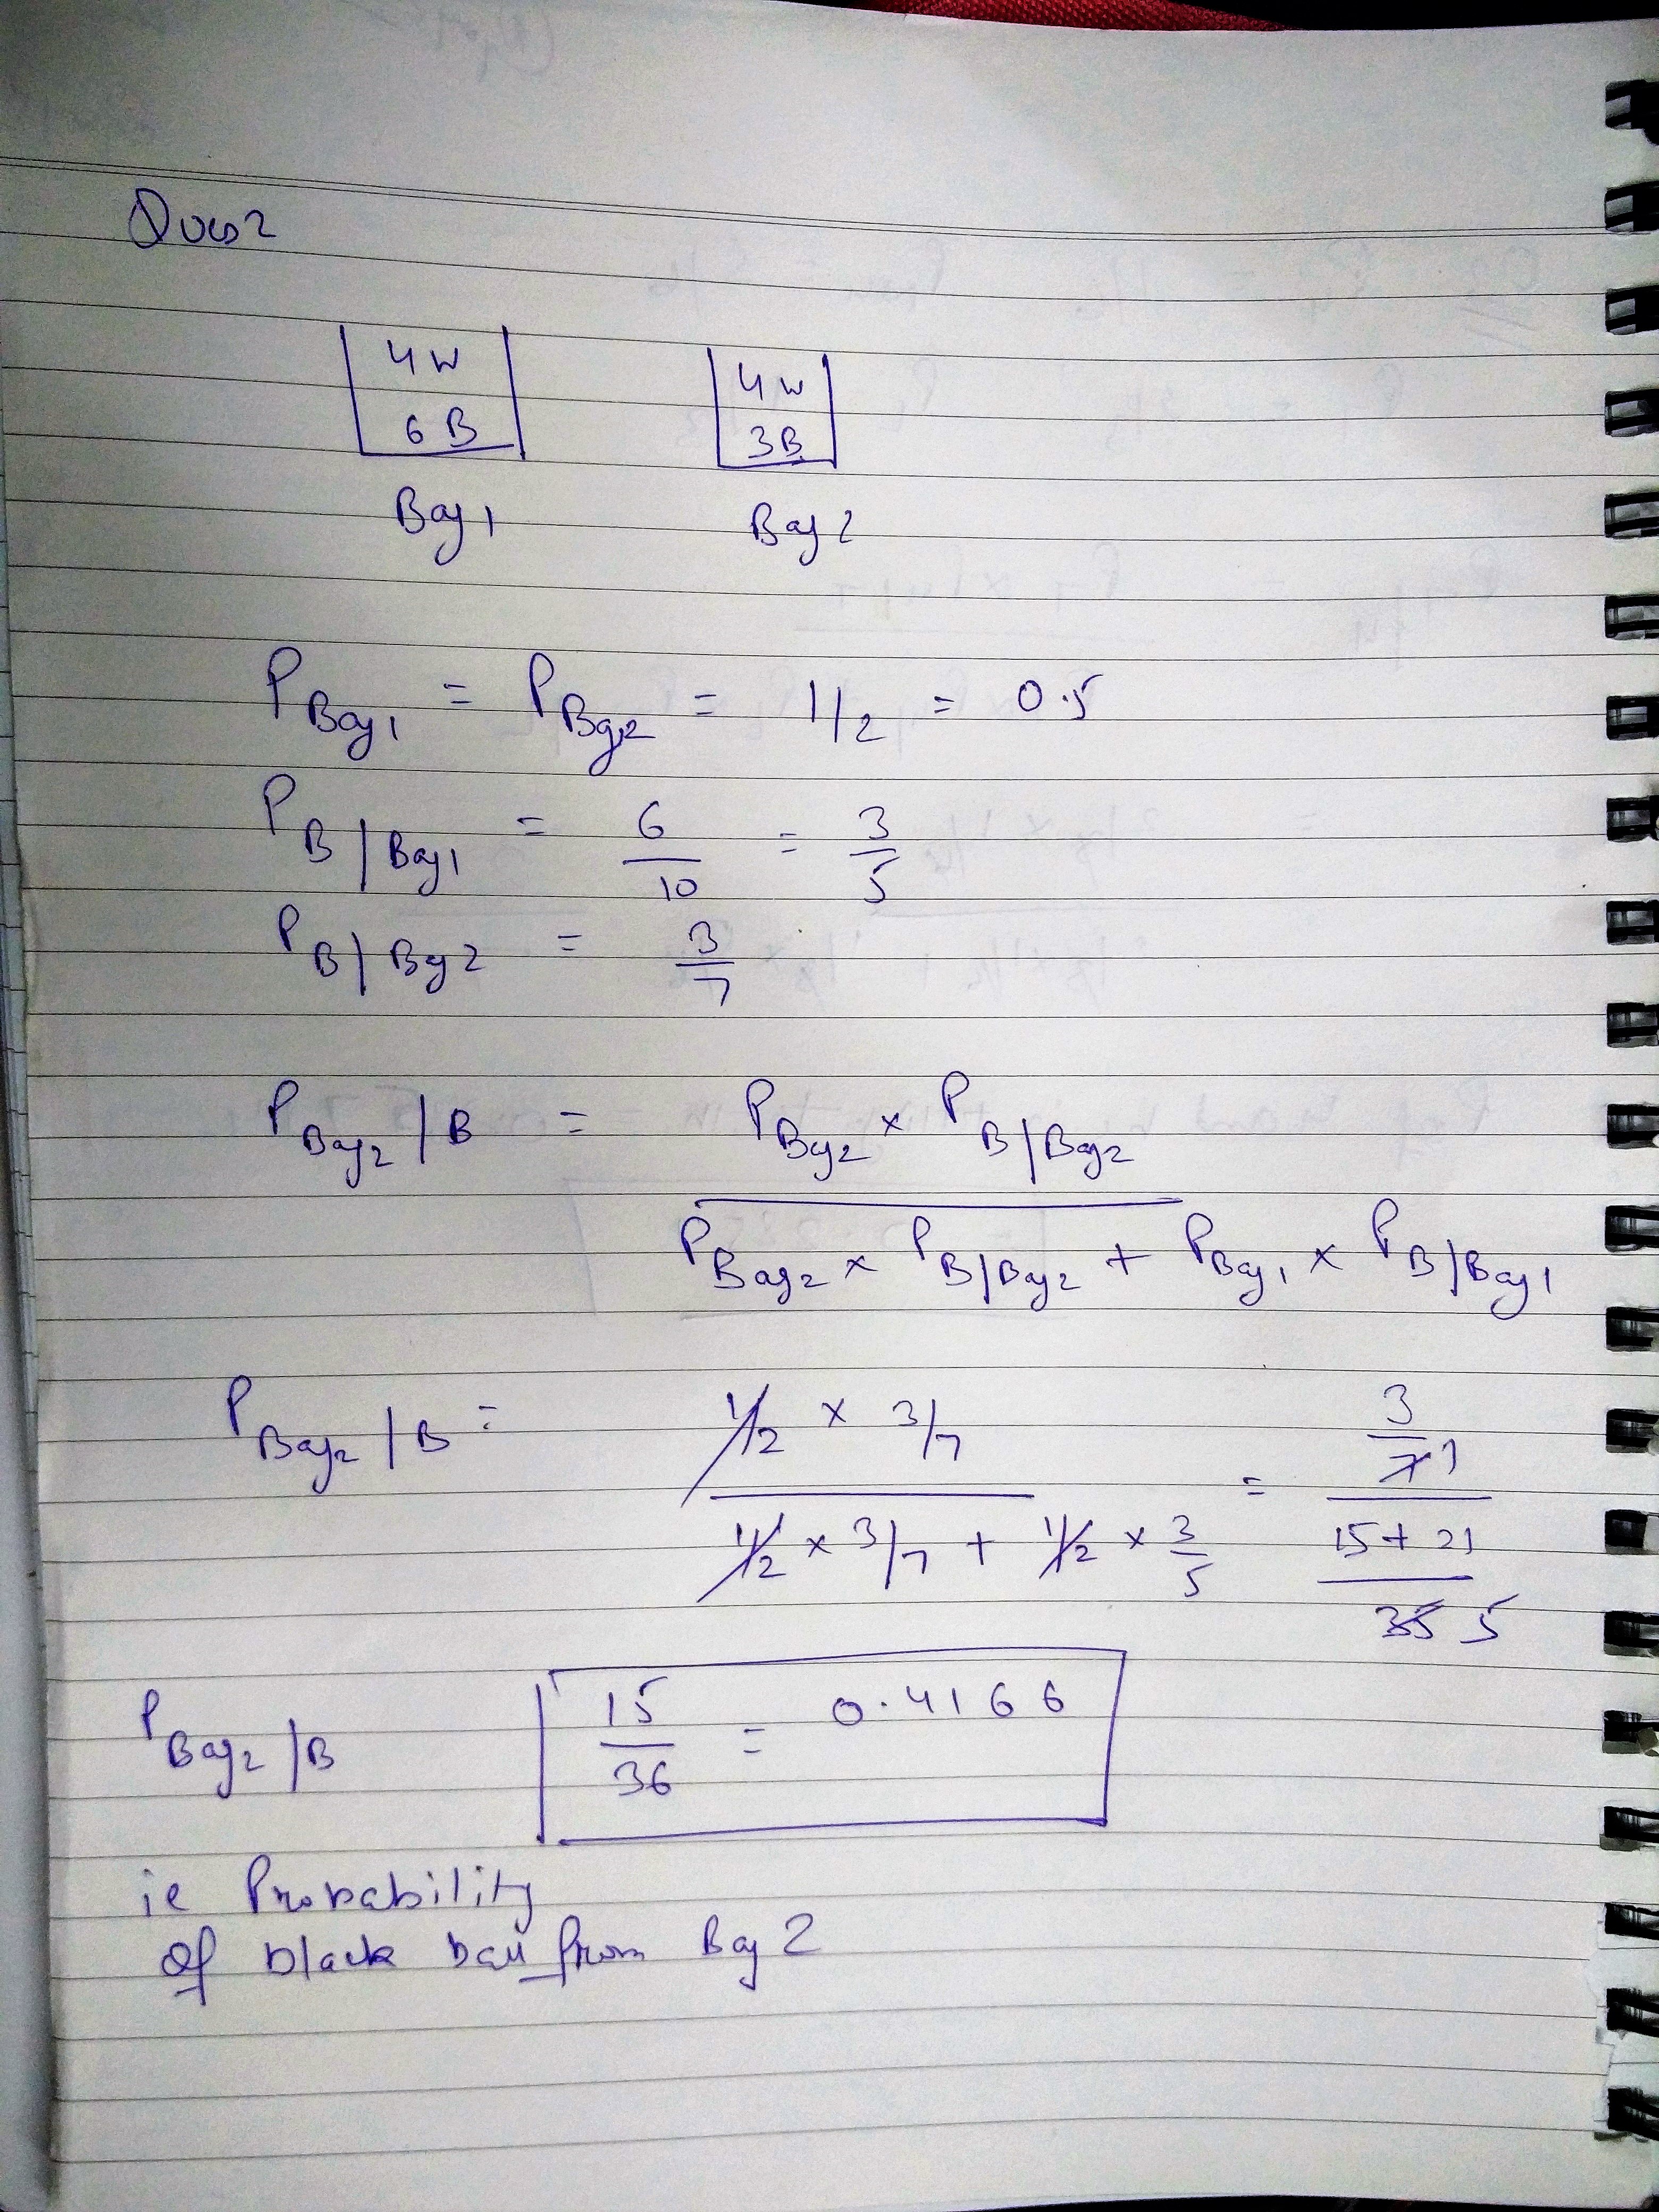 Ques 2
4W 4W
6B 3B
Bag 1 Bag 2
P Bag 1 = P Bag 2 = 1/2 = 0.5
P B | Bag 1 = 6/10 = 3/5
P B | Bag 2 = 3/7
P Bag 2 | B = P Bag 2 × P B | Bag 2
P Bag 2 × P B | Bag 2 + P Bag 1 × P B | Bag 1
P Bag 2 | B = 1/2 × 3/7 = 3/7 1
1/2 × 3/7 + 1/2 × 3/5 15 + 21
35 5
P Bag 2 | B 15/36 = 0.4166
ie Probability
of black ball from Bag 2